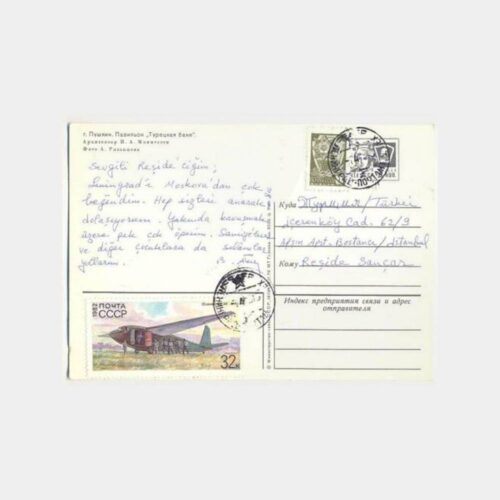 г. Пушкин. Павильон „Турецкая баня“.
Архитектор И. А. Монигетти
Фото А. Рязанцева
Sevgili Reşide'ciğim;
Leningrad'ı Moskova'dan çok
beğendim. Hep sizleri anarak
dolaşıyorum. Yakında kavuşmak
üzere pek çok öperim. Samiye'lere
ve diğer çocuklara da selamlar
yollarım.
Куда Турция / Türkei
içerenköy Cad. 62/9
Apt. Bostancı / İstanbul
Кому Reşide Sançar
Индекс предприятия связи и адрес
отправителя
1982 ПОЧТА
СССР
32к